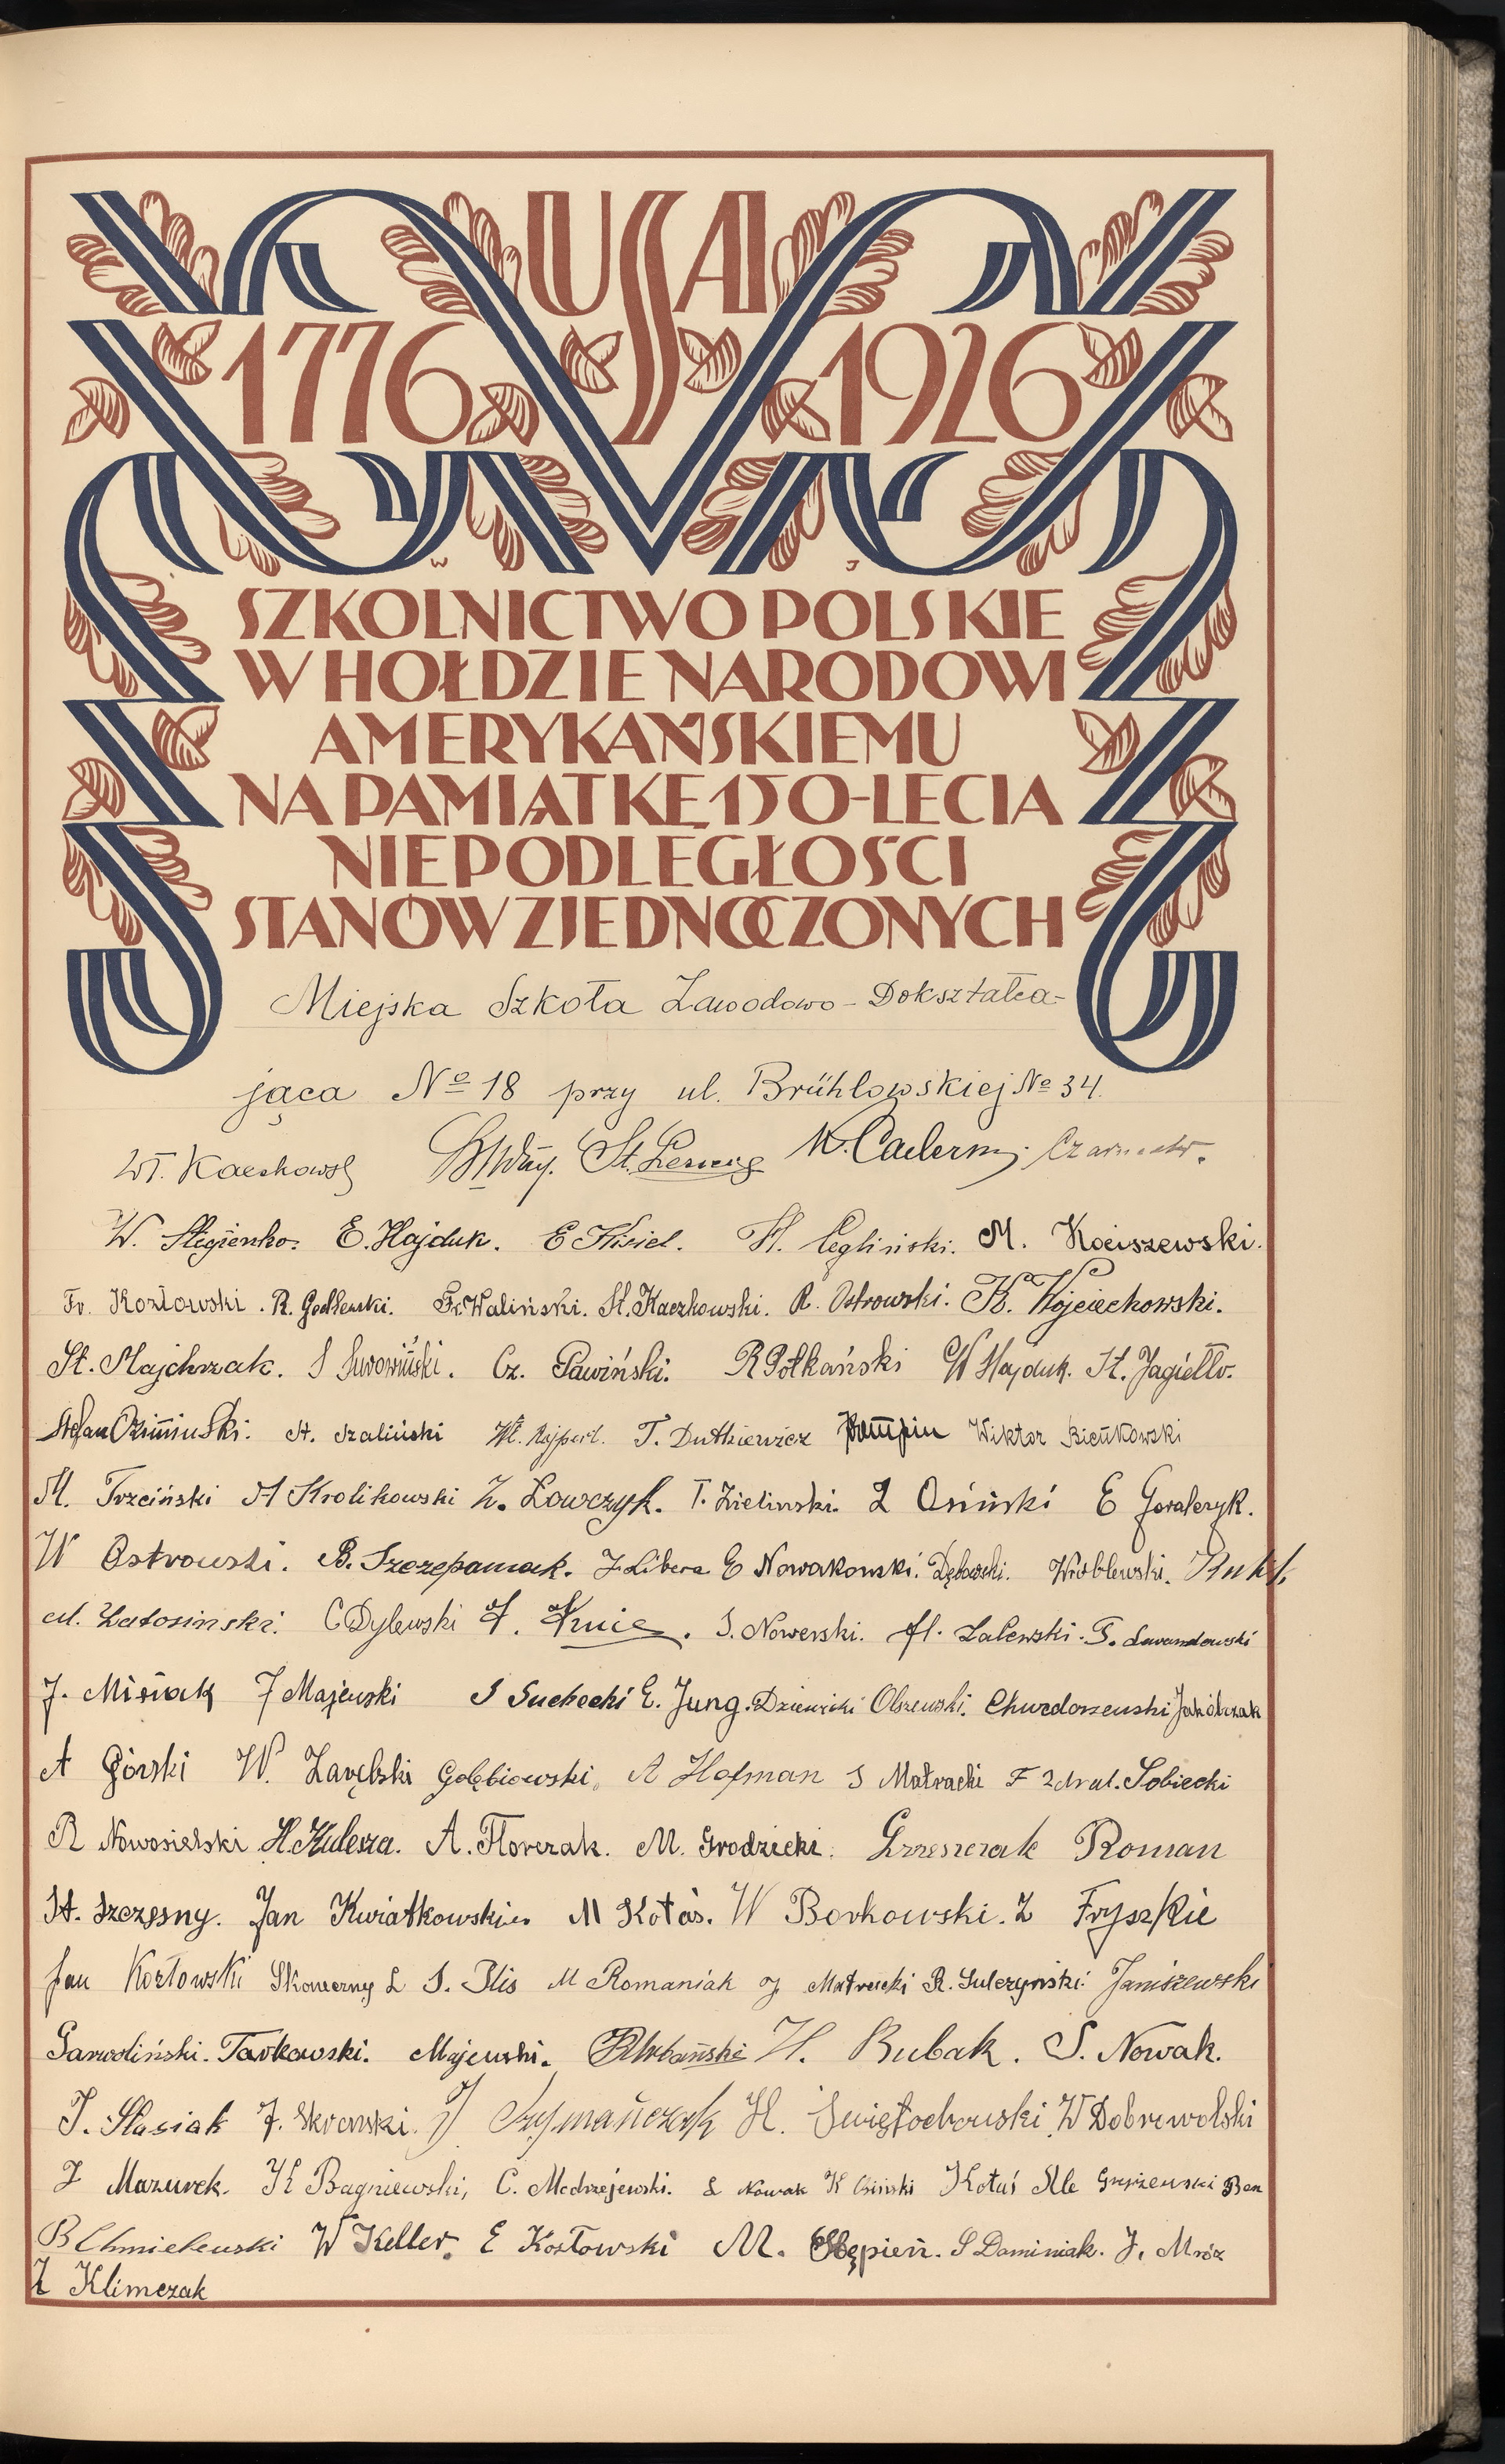 USA
1776 1926
W J
SZKOLNICTWO POLSKIE
W HOŁDZIE NARODOWI
AMERYKAŃSKIEMU
NA PAMIĄTKĘ 150-LECIA
NIEPODLEGŁOŚCI
STANÓW ZJEDNOCZONYCH
Miejska Szkoła Zawodowo-Dokształca-
jąca № 18 przy ul. Brühlowskiej № 34.
Wł. Kaczkowsk
W. Stegienko. E. Hajduk. E Kisiel. St. Cegliński. M. Kociszewski.
Fr. Kozłowski. R. Godlewski. Fr. Waliński. St. Kaczkowski. R. Ostrowski. K. Wojciechowski.
St. Majchrzak. Cz. Pawiński. R Połkański W Hajduk. St. Jagiełło.
Stefan St. Szaliński T. Dutkiewicz Wiktor Bieńkowski
M. Trzciński A Krolikowski Z. Łowczyk. T. Zielinski. Z Osiński E Goralczyk.
W Ostrowski. B. Szczepaniak. J. Libera E Nowakowski. Dębowski. Wróblewski.
M. Latosinski. C Dylewski F. Knie. S. Nowerski. A. Zalewski. T. Lewandowski
J. Misiak J Majewski S Suchocki E. Jung. Dziewicki Olszewski. Chwedorzewski Jakóbczak
A Górski W. Zarębski Gołębiowski, A Hofman S Matracki F Zdral. Sobiecki
R Nowosielski H. Kulesza. A. Florczak. M. Grodzicki. Grzeszczak Roman
St. Szczęsny. Jan Kwiatkowski. M Kotas. W Borkowski. Z Fryszkie
Jan Kozłowski Skowerny L S. Plis M Romaniak J Matracki R. Sulczyński. Janiszewski
Garwoliński. Tarkowski. Majewski. R Urbański H. Rubak. S. Nowak.
T. Stasiak F. Skrowski. J Szymańczyk H. Swiętochowski, W Dobrowolski
J Mazurek. K Bagniewski, C. Modrzejewski. L Nowak K Osiński Kotuś Ale Gryżewski Ben
B Chmielewski W Keller. E Kozłowski M. Stępień. S Dominiak. J. Mróz
Z Klimczak